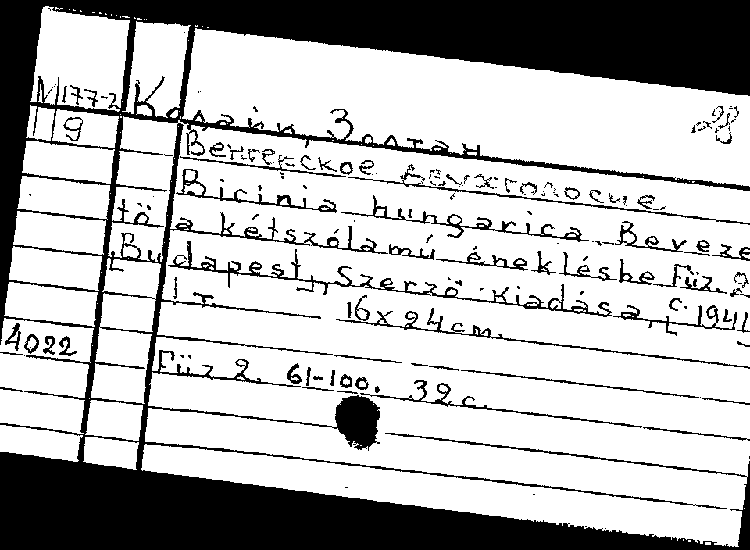 28
М177-2 Кодайи, Золтан
119
Венгерское двухголосие.
Bicinia hungarica. Beveze
tö a kétszólamú éneklésbe. Füz. 2
[Budapest], Szerzö kiadása, [c. 1941
1 т. 16x24cm.
4022
Füz 2. 61-100. 32 c.